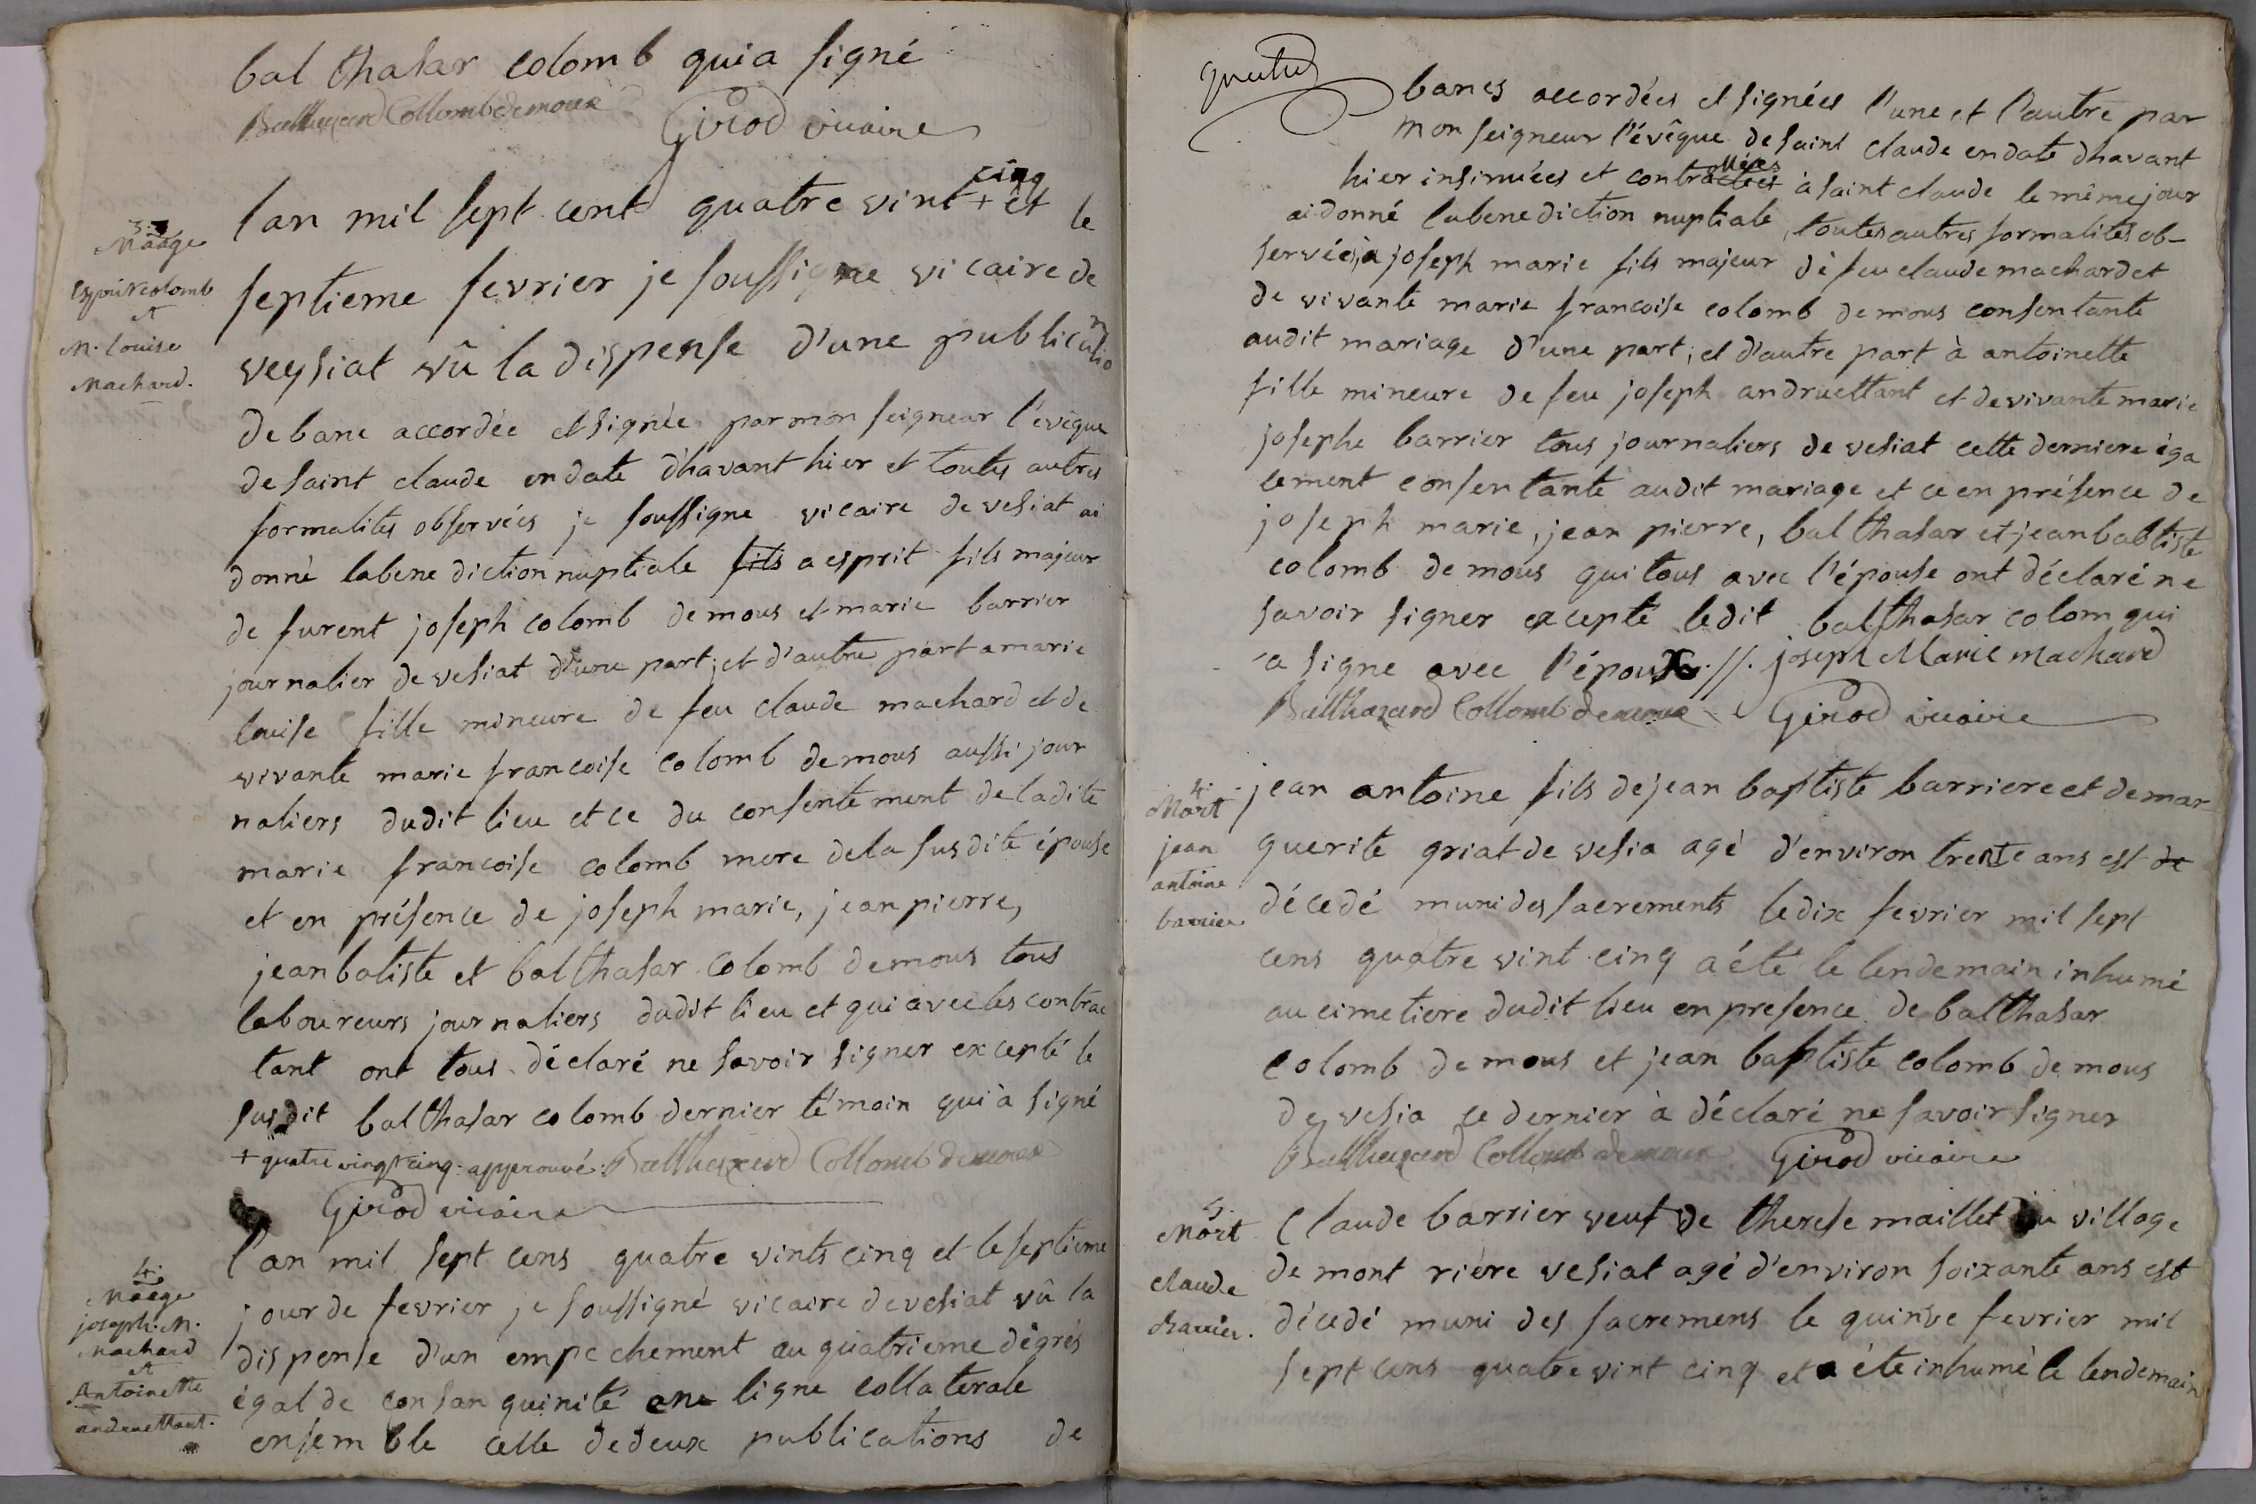 balthasar colomb qui a signé
Balthazard Collomb demoux Girod vicaire
3.
Mââge
Esprit colomb
et
M. louise
Machard.
cinq
lan mil sept cent quatre vint + et le
septieme fevrier je soussigne vicaire de
veysiat vû la dispense d'une publication
de banc accordée et signée par mon seigneur l'évêque
de saint claude en date d'havant hier et toutes autres
formalités observées je soussigne vicaire de vesiat ai
donné la benediction nuptiale fils a esprit fils majeur
de furent joseph colomb demous et marie barrier
journalier de vesiat d'une part; et d'autre part a marie
louise fille mineure de feu claude machard et de
vivante marie francoise colomb demous aussi jour
naliers dudit lieu et ce du consentement de ladite
marie francoise colomb mere de la susdite épouse
et en présence de joseph marie, jean pierre,
jean batiste et balthasar colomb demous tous
laboureurs journaliers dudit lieu et qui avec les contrac
tant ont tous déclaré ne savoir signer excepté le
susdit balthasar colomb dernier témoin qui à signé
+ quatre vingt cinq approuvé. Balthazard Collomb demoux
Girod vicaire
4.
Mââge
joseph. M.
Machard
et
Antoinette
andruettant.
l'an mil sept cens quatre vints cinq et le septieme
jour de fevrier je soussigné vicaire de vesiat vû la
dispense d'un empechement au quatrieme dégrés
égal de consanguinité en ligne collaterale
ensemble celle de deux publications de
bancs accordées et signées l'une et l'autre par
mon seigneur l'évêque de saint claude en date dhavant
hier insinuées et contractées à saint claude le même jour
ai donné la benediction nuptiale, toutes autres formalités ob-
servées, a joseph marie fils majeur de feu claude machard et
de vivante marie francoise colomb demous consentante
audit mariage d'une part; et d'autre part à antoinette
fille mineure de feu joseph andruettant et de vivante marie
josephe barrier tous journaliers de vesiat cette derniere éga
lement consentante audit mariage et ce en présence de
joseph marie, jean pierre, balthasar et jean babtiste
colomb demous qui tous avec l'épouse ont déclaré ne
savoir signer excepté ledit balthasar colom qui
a signe avec l'époux .//. joseph Marie machard
Balthazard Collomb demoux Girod vicaire
4.
Mort
jean
antoine
barrier
jean antoine fils de jean baptiste barriere et de mar
guerite griat de vesia agé d'environ trente ans est de
décedé muni des sacrements le dix fevrier mil sept
cens quatre vint cinq a été le lendemain inhumé
au cimetiere dudit lieu en presence de balthasar
colomb demous et jean baptiste colomb demous
de vesia ce dernier à déclaré ne savoir signer
Balthazard Collomb demoux Girod vicaire
5.
Mort
claude
barrier.
Claude barrier veuf de therese maillet du village
de mont rière vesiat agé d'environ soixante ans est
décedé muni des sacremens le quinze fevrier mil
sept cens quatre vint cinq et a été inhumé le lendemain